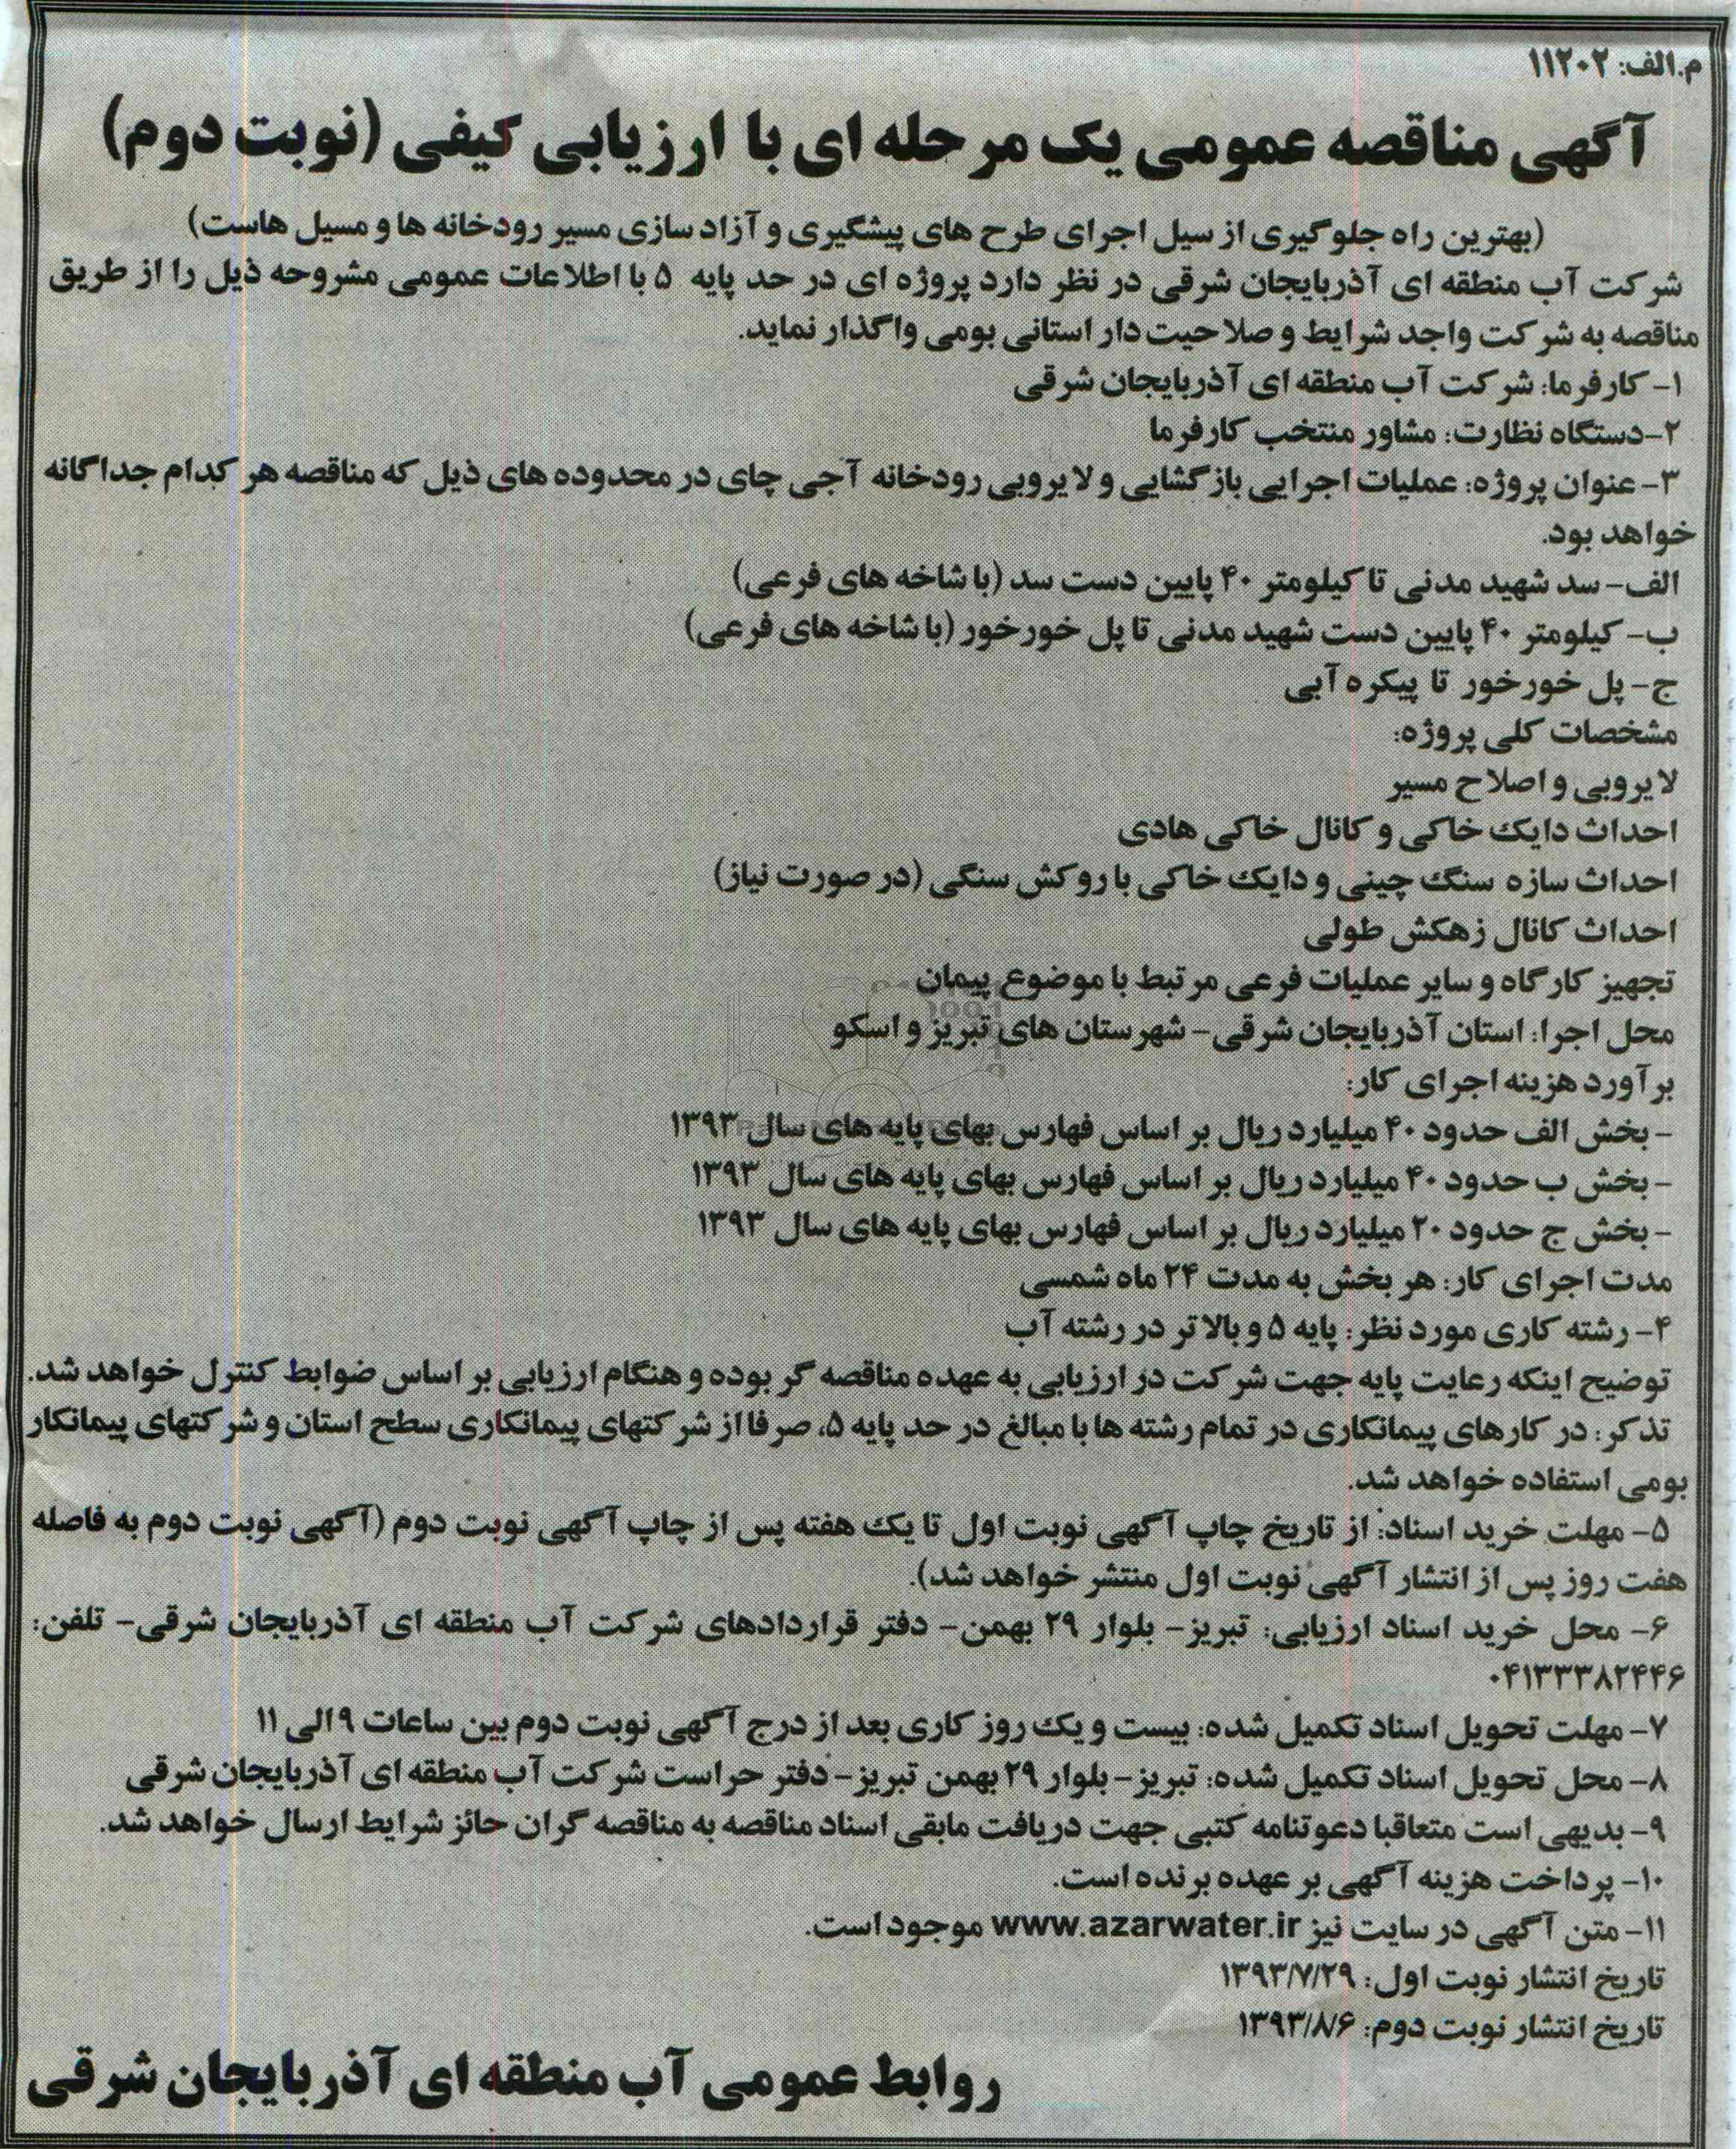 م.الف: ۱۱۲۰۲
آگهی مناقصه عمومی یک مرحله ای با ارزیابی کیفی (نوبت دوم)
(بهترین راه جلوگیری از سیل اجرای طرح های پیشگیری و آزاد سازی مسیر رودخانه ها و مسیل هاست)
شرکت آب منطقه ای آذربایجان شرقی در نظر دارد پروژه ای در حد پایه ۵ با اطلاعات عمومی مشروحه ذیل را از طریق
مناقصه به شرکت واجد شرایط و صلاحیت دار استانی بومی واگذار نماید.
۱- کارفرما: شرکت آب منطقه ای آذربایجان شرقی
۲-دستگاه نظارت: مشاور منتخب کارفرما
۳- عنوان پروژه: عملیات اجرایی بازگشایی و لایروبی رودخانه آجی چای در محدوده های ذیل که مناقصه هر کدام جداگانه
خواهد بود.
الف- سد شهید مدنی تا کیلومتر ۴۰ پایین دست سد (با شاخه های فرعی)
ب- کیلومتر ۴۰ پایین دست شهید مدنی تا پل خورخور (با شاخه های فرعی)
ج- پل خورخور تا پیکره آبی
مشخصات کلی پروژه:
لایروبی و اصلاح مسیر
احداث دایک خاکی و کانال خاکی هادی
احداث سازه سنگ چینی و دایک خاکی با روکش سنگی (در صورت نیاز)
احداث کانال زهکش طولی
تجهیز کارگاه و سایر عملیات فرعی مرتبط با موضوع پیمان
محل اجرا: استان آذربایجان شرقی- شهرستان های تبریز و اسکو
برآورد هزینه اجرای کار:
- بخش الف حدود ۴۰ میلیارد ریال بر اساس فهارس بهای پایه های سال ۱۳۹۳
- بخش ب حدود ۴۰ میلیارد ریال بر اساس فهارس بهای پایه های سال ۱۳۹۳
- بخش ج حدود ۲۰ میلیارد ریال بر اساس فهارس بهای پایه های سال ۱۳۹۳
مدت اجرای کار: هر بخش به مدت ۲۴ ماه شمسی
۴- رشته کاری مورد نظر: پایه ۵ و بالاتر در رشته آب
توضیح اینکه رعایت پایه جهت شرکت در ارزیابی به عهده مناقصه گر بوده و هنگام ارزیابی بر اساس ضوابط کنترل خواهد شد.
تذکر: در کارهای پیمانکاری در تمام رشته ها با مبالغ در حد پایه ۵، صرفا از شرکتهای پیمانکاری سطح استان و شرکتهای پیمانکار
بومی استفاده خواهد شد.
۵- مهلت خرید اسناد: از تاریخ چاپ آگهی نوبت اول تا یک هفته پس از چاپ آگهی نوبت دوم (آگهی نوبت دوم به فاصله
هفت روز پس از انتشار آگهی نوبت اول منتشر خواهد شد).
۶- محل خرید اسناد ارزیابی: تبریز- بلوار ۲۹ بهمن- دفتر قراردادهای شرکت آب منطقه ای آذربایجان شرقی- تلفن:
۰۴۱۳۳۳۸۲۴۴۶
۷- مهلت تحویل اسناد تکمیل شده: بیست و یک روز کاری بعد از درج آگهی نوبت دوم بین ساعات ۹ الی ۱۱
۸- محل تحویل اسناد تکمیل شده: تبریز- بلوار ۲۹ بهمن تبریز- دفتر حراست شرکت آب منطقه ای آذربایجان شرقی
۹- بدیهی است متعاقبا دعوتنامه کتبی جهت دریافت مابقی اسناد مناقصه به مناقصه گران حائز شرایط ارسال خواهد شد.
۱۰- پرداخت هزینه آگهی بر عهده برنده است.
۱۱- متن آگهی در سایت نیز www.azarwater.ir موجود است.
تاریخ انتشار نوبت اول: ۱۳۹۳/۷/۲۹
تاریخ انتشار نوبت دوم: ۱۳۹۳/۸/۶
روابط عمومی آب منطقه ای آذربایجان شرقی